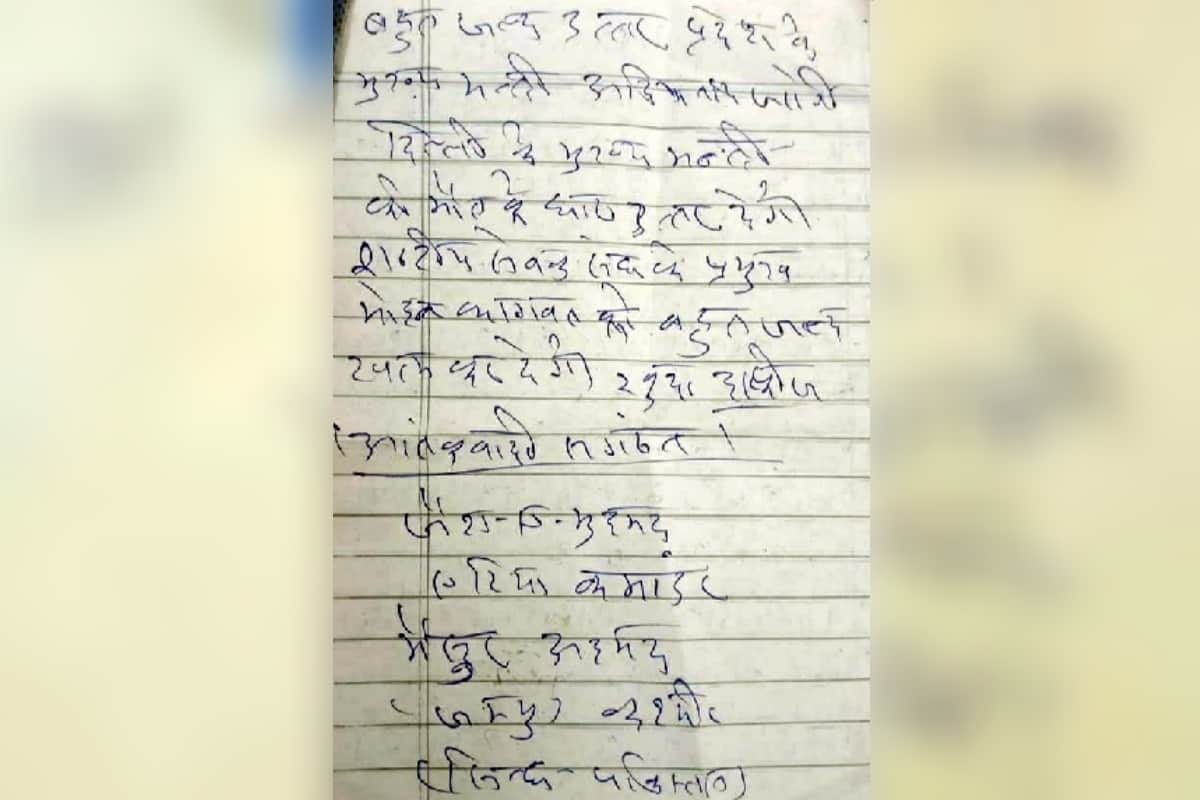 बहुत जल्द उत्तर प्रदेश के
मुख्य मन्त्री आदित्यनाथ जोगी
दिल्ली के मुख्य मन्त्री
को मौत के घाट उतार देंगे
सेवक संघ के प्रमुख
मोहन भागवत को बहुत जल्द
खत्म कर देंगे खुदा हाफीज
आंतकवादी संगठन ।
जैश-ऐ-मुहमद
एरिया कमांडर
अहमद
जम्मु कश्मीर
(सिन्ध-पाकिस्तान)